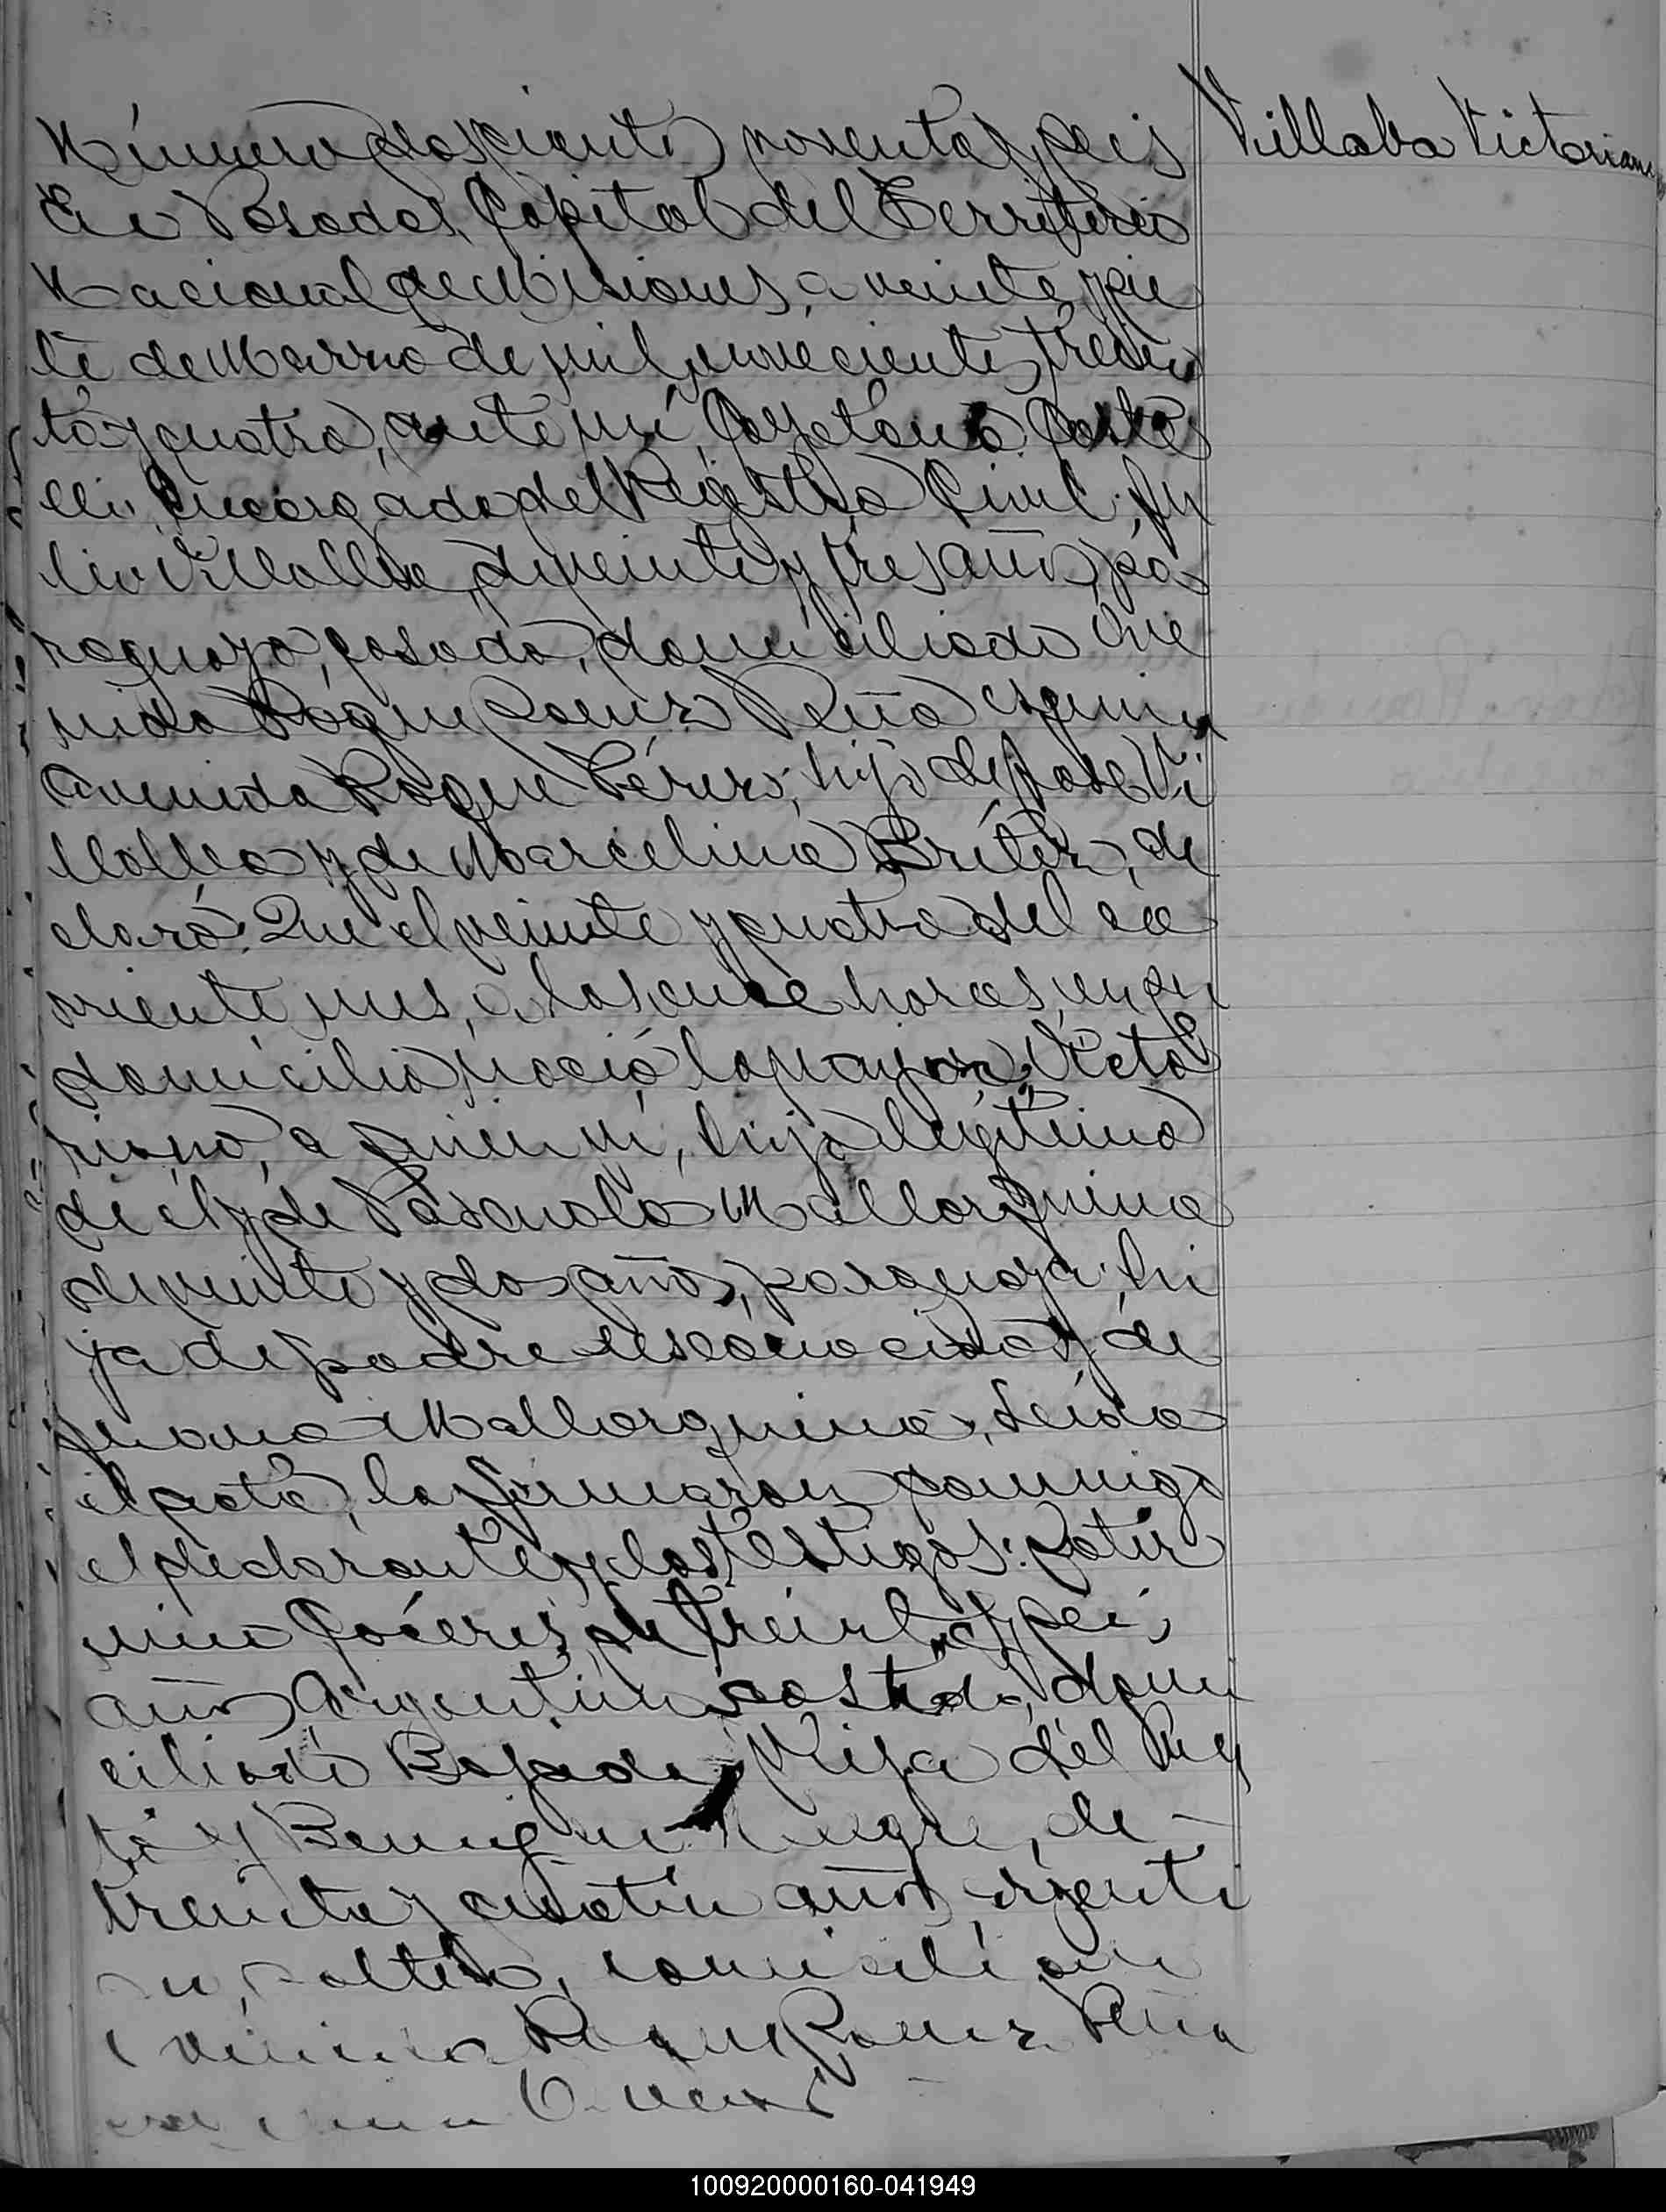 Número doscientos noventa y seis
Villalba Victoriana
En Posadas, Capital del Territorio
Nacional de Misiones, a veinte y sie
te de Marzo de mil novecientos trein
ta y cuatro, ante mí, Cayetano Caste
lli, Encargado del Registro Civil, Ju
lio Villalba, de veinte y tres años, pa
raguayo, casado, domiciliado Ave
nida Roque Saenz Peña esquina
Avenida Roque Pérez, hijo de José Vi
llalba y de Marcelina Brítez, de
claró: Que el veinte y cuatro del co
rriente mes, a las once horas, en su
domicilio, nació la mujer Victo
riana, a quien vi, hija legítima
de él y de Pascuala Mallorquina
de veinte y dos años, paraguaya, hi
ja de padre desconocido y de
Juana Mallorquina, Leída
el acta, la firmaron conmigo
el declarante y los testigos: Satur
nino Cáceres, de treinta y seis
años, Argentino, casado, domi
ciliado Bajada Vieja del Puer
to y Benigno, de
treinta y cuatro años, argenti
no, soltero, domiciliado
Avenida Roque Saenz Peña